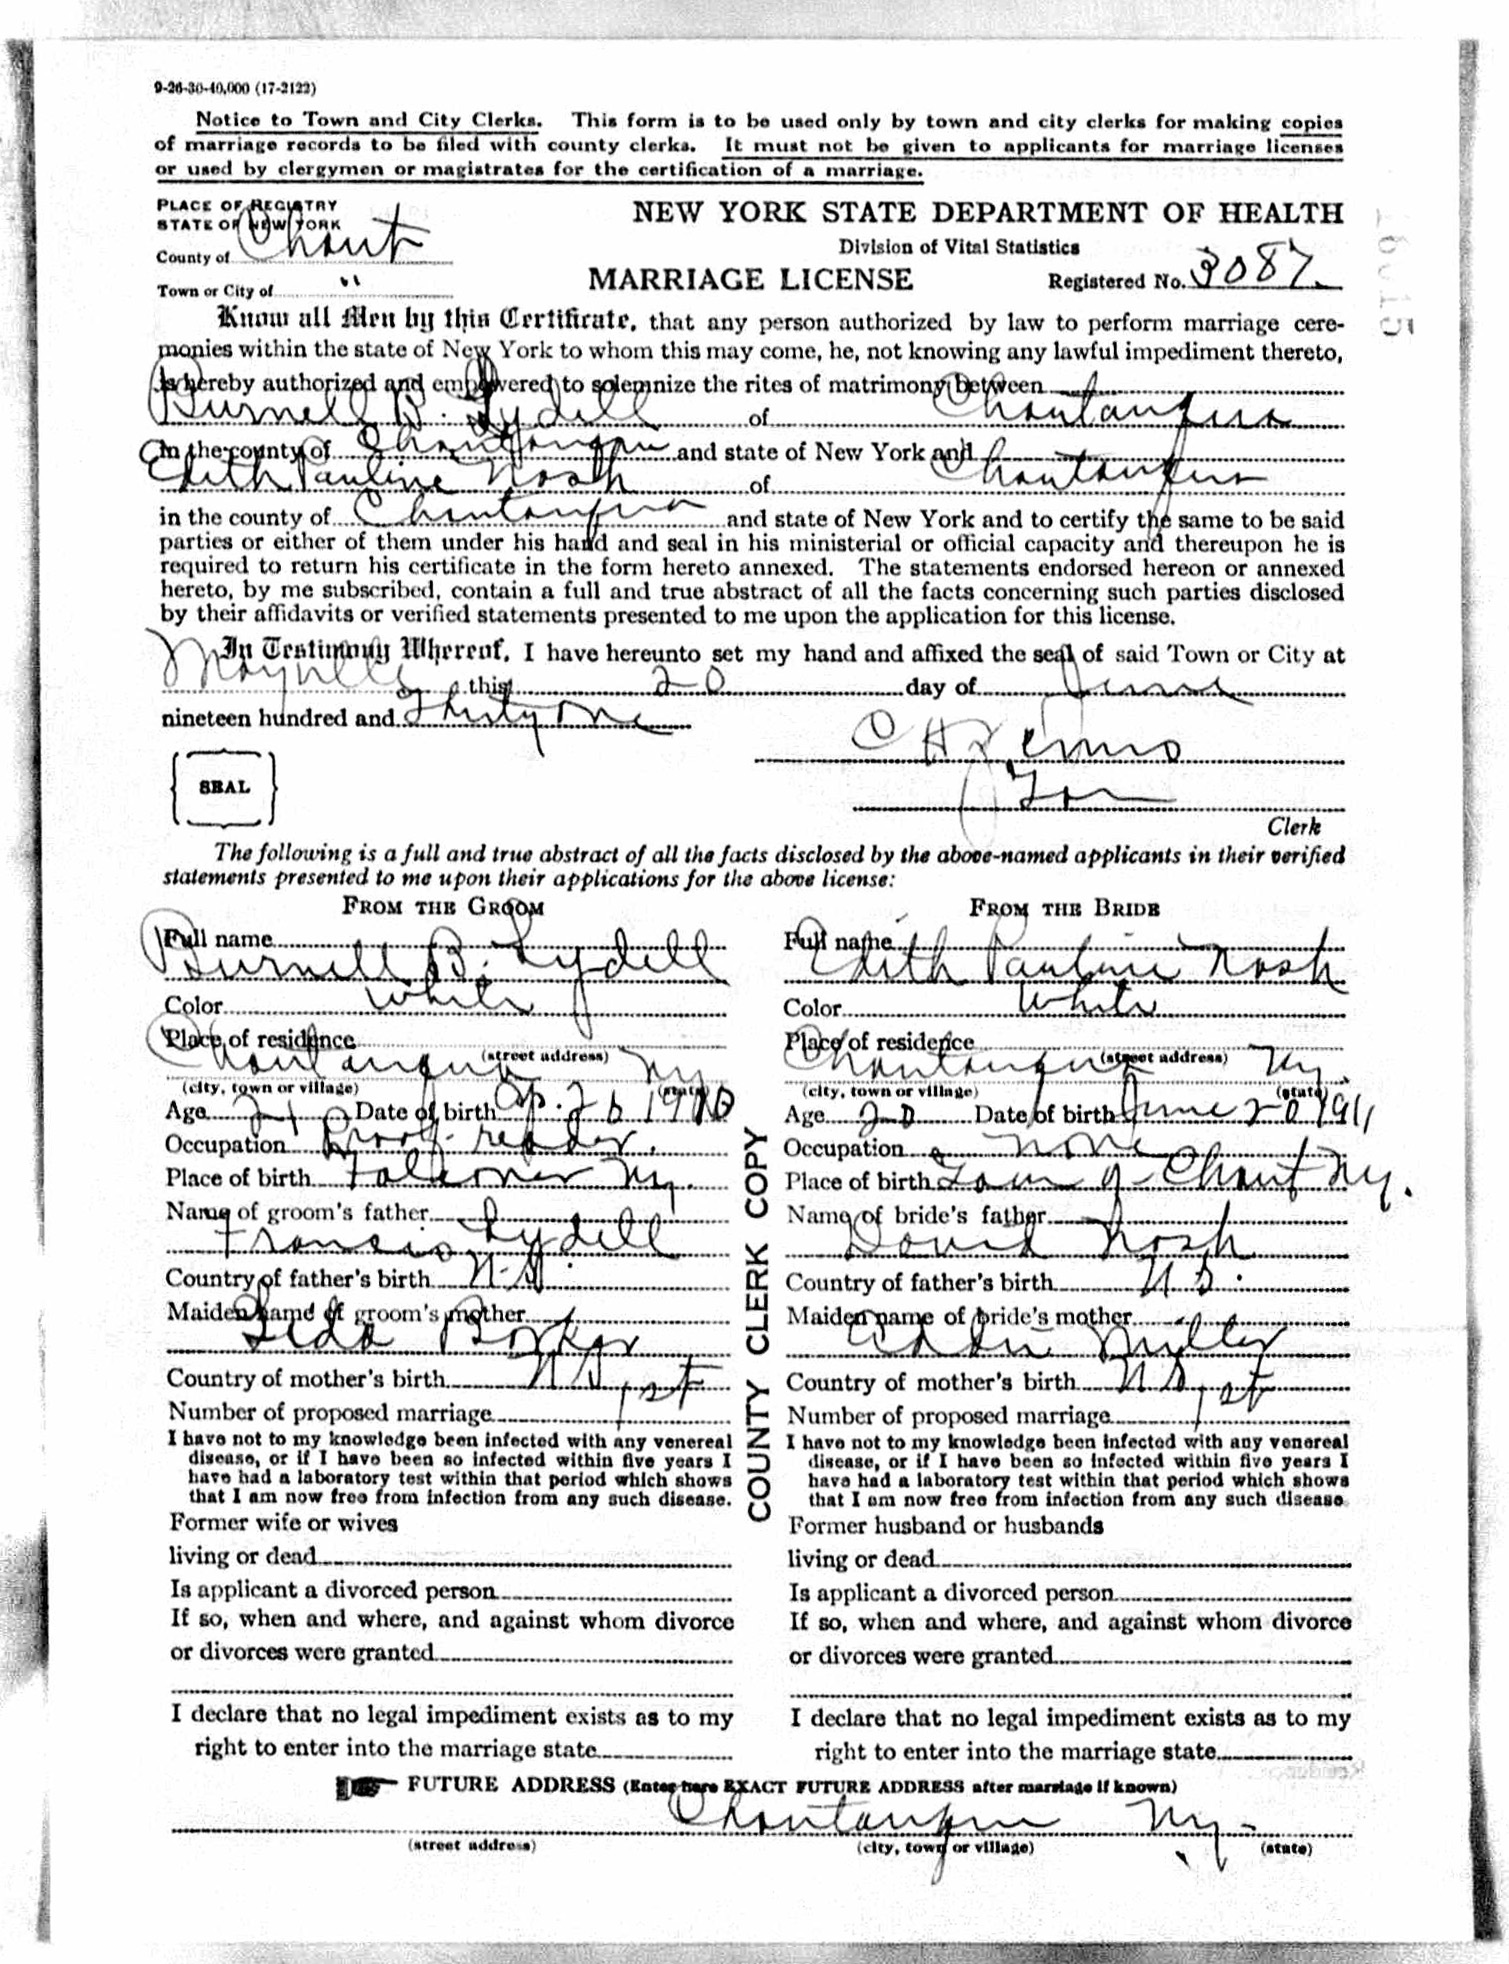 9-26-30-40,000 (17-2122)
Notice to Town and City Clerks. This form is to be used only by town and city clerks for making copies
of marriage records to be filed with county clerks. It must not be given to applicants for marriage licenses
or used by clergymen or magistrates for the certification of a marriage.
PLACE OF REGISTRY
STATE OF NEW YORK
County of Chaut
Town or City of "
NEW YORK STATE DEPARTMENT OF HEALTH
Division of Vital Statistics
MARRIAGE LICENSE
Registered No. 3087
Know all Men by this Certificate, that any person authorized by law to perform marriage cere-
monies within the state of New York to whom this may come, he, not knowing any lawful impediment thereto,
is hereby authorized and empowered to solemnize the rites of matrimony between
Burnell B. Lydell of Chautauqua
in the county of Chautauqua and state of New York and
Edith Pauline Nash of Chautauqua
in the county of Chautauqua and state of New York and to certify the same to be said
parties or either of them under his hand and seal in his ministerial or official capacity and thereupon he is
required to return his certificate in the form hereto annexed. The statements endorsed hereon or annexed
hereto, by me subscribed, contain a full and true abstract of all the facts concerning such parties disclosed
by their affidavits or verified statements presented to me upon the application for this license.
In Testimony Whereof, I have hereunto set my hand and affixed the seal of said Town or City at
Mayville this 20 day of June
nineteen hundred and Thirty One
SEAL
C H
Clerk
The following is a full and true abstract of all the facts disclosed by the above-named applicants in their verified
statements presented to me upon their applications for the above license:
FROM THE GROOM
Full name
Burnell B. Lydell
Color White
Place of residence
(street address)
Chautauqua Ny
(city, town or village) (state)
Age 21 Date of birth Ap. 26 1910
Occupation Proof reader.
Place of birth Falconer Ny.
Name of groom's father
Francis Lydell
Country of father's birth U.S.
Maiden name of groom's mother
Leda Barker
Country of mother's birth U.S.
Number of proposed marriage 1st
I have not to my knowledge been infected with any venereal
disease, or if I have been so infected within five years I
have had a laboratory test within that period which shows
that I am now free from infection from any such disease.
Former wife or wives
living or dead
Is applicant a divorced person
If so, when and where, and against whom divorce
or divorces were granted
I declare that no legal impediment exists as to my
right to enter into the marriage state
COUNTY CLERK COPY
FROM THE BRIDE
Full name
Edith Pauline Nash
Color White
Place of residence
(street address)
Chautauqua Ny.
(city, town or village) (state)
Age 20 Date of birth June 20 1911
Occupation none
Place of birth Town of Chaut Ny.
Name of bride's father
David Nash
Country of father's birth U.S.
Maiden name of bride's mother
Addie Miller
Country of mother's birth U.S.
Number of proposed marriage 1st
I have not to my knowledge been infected with any venereal
disease, or if I have been so infected within five years I
have had a laboratory test within that period which shows
that I am now free from infection from any such disease
Former husband or husbands
living or dead
Is applicant a divorced person
If so, when and where, and against whom divorce
or divorces were granted
I declare that no legal impediment exists as to my
right to enter into the marriage state
FUTURE ADDRESS (Enter here EXACT FUTURE ADDRESS after marriage if known)
Chautauqua Ny.
(street address) (city, town or village) (state)